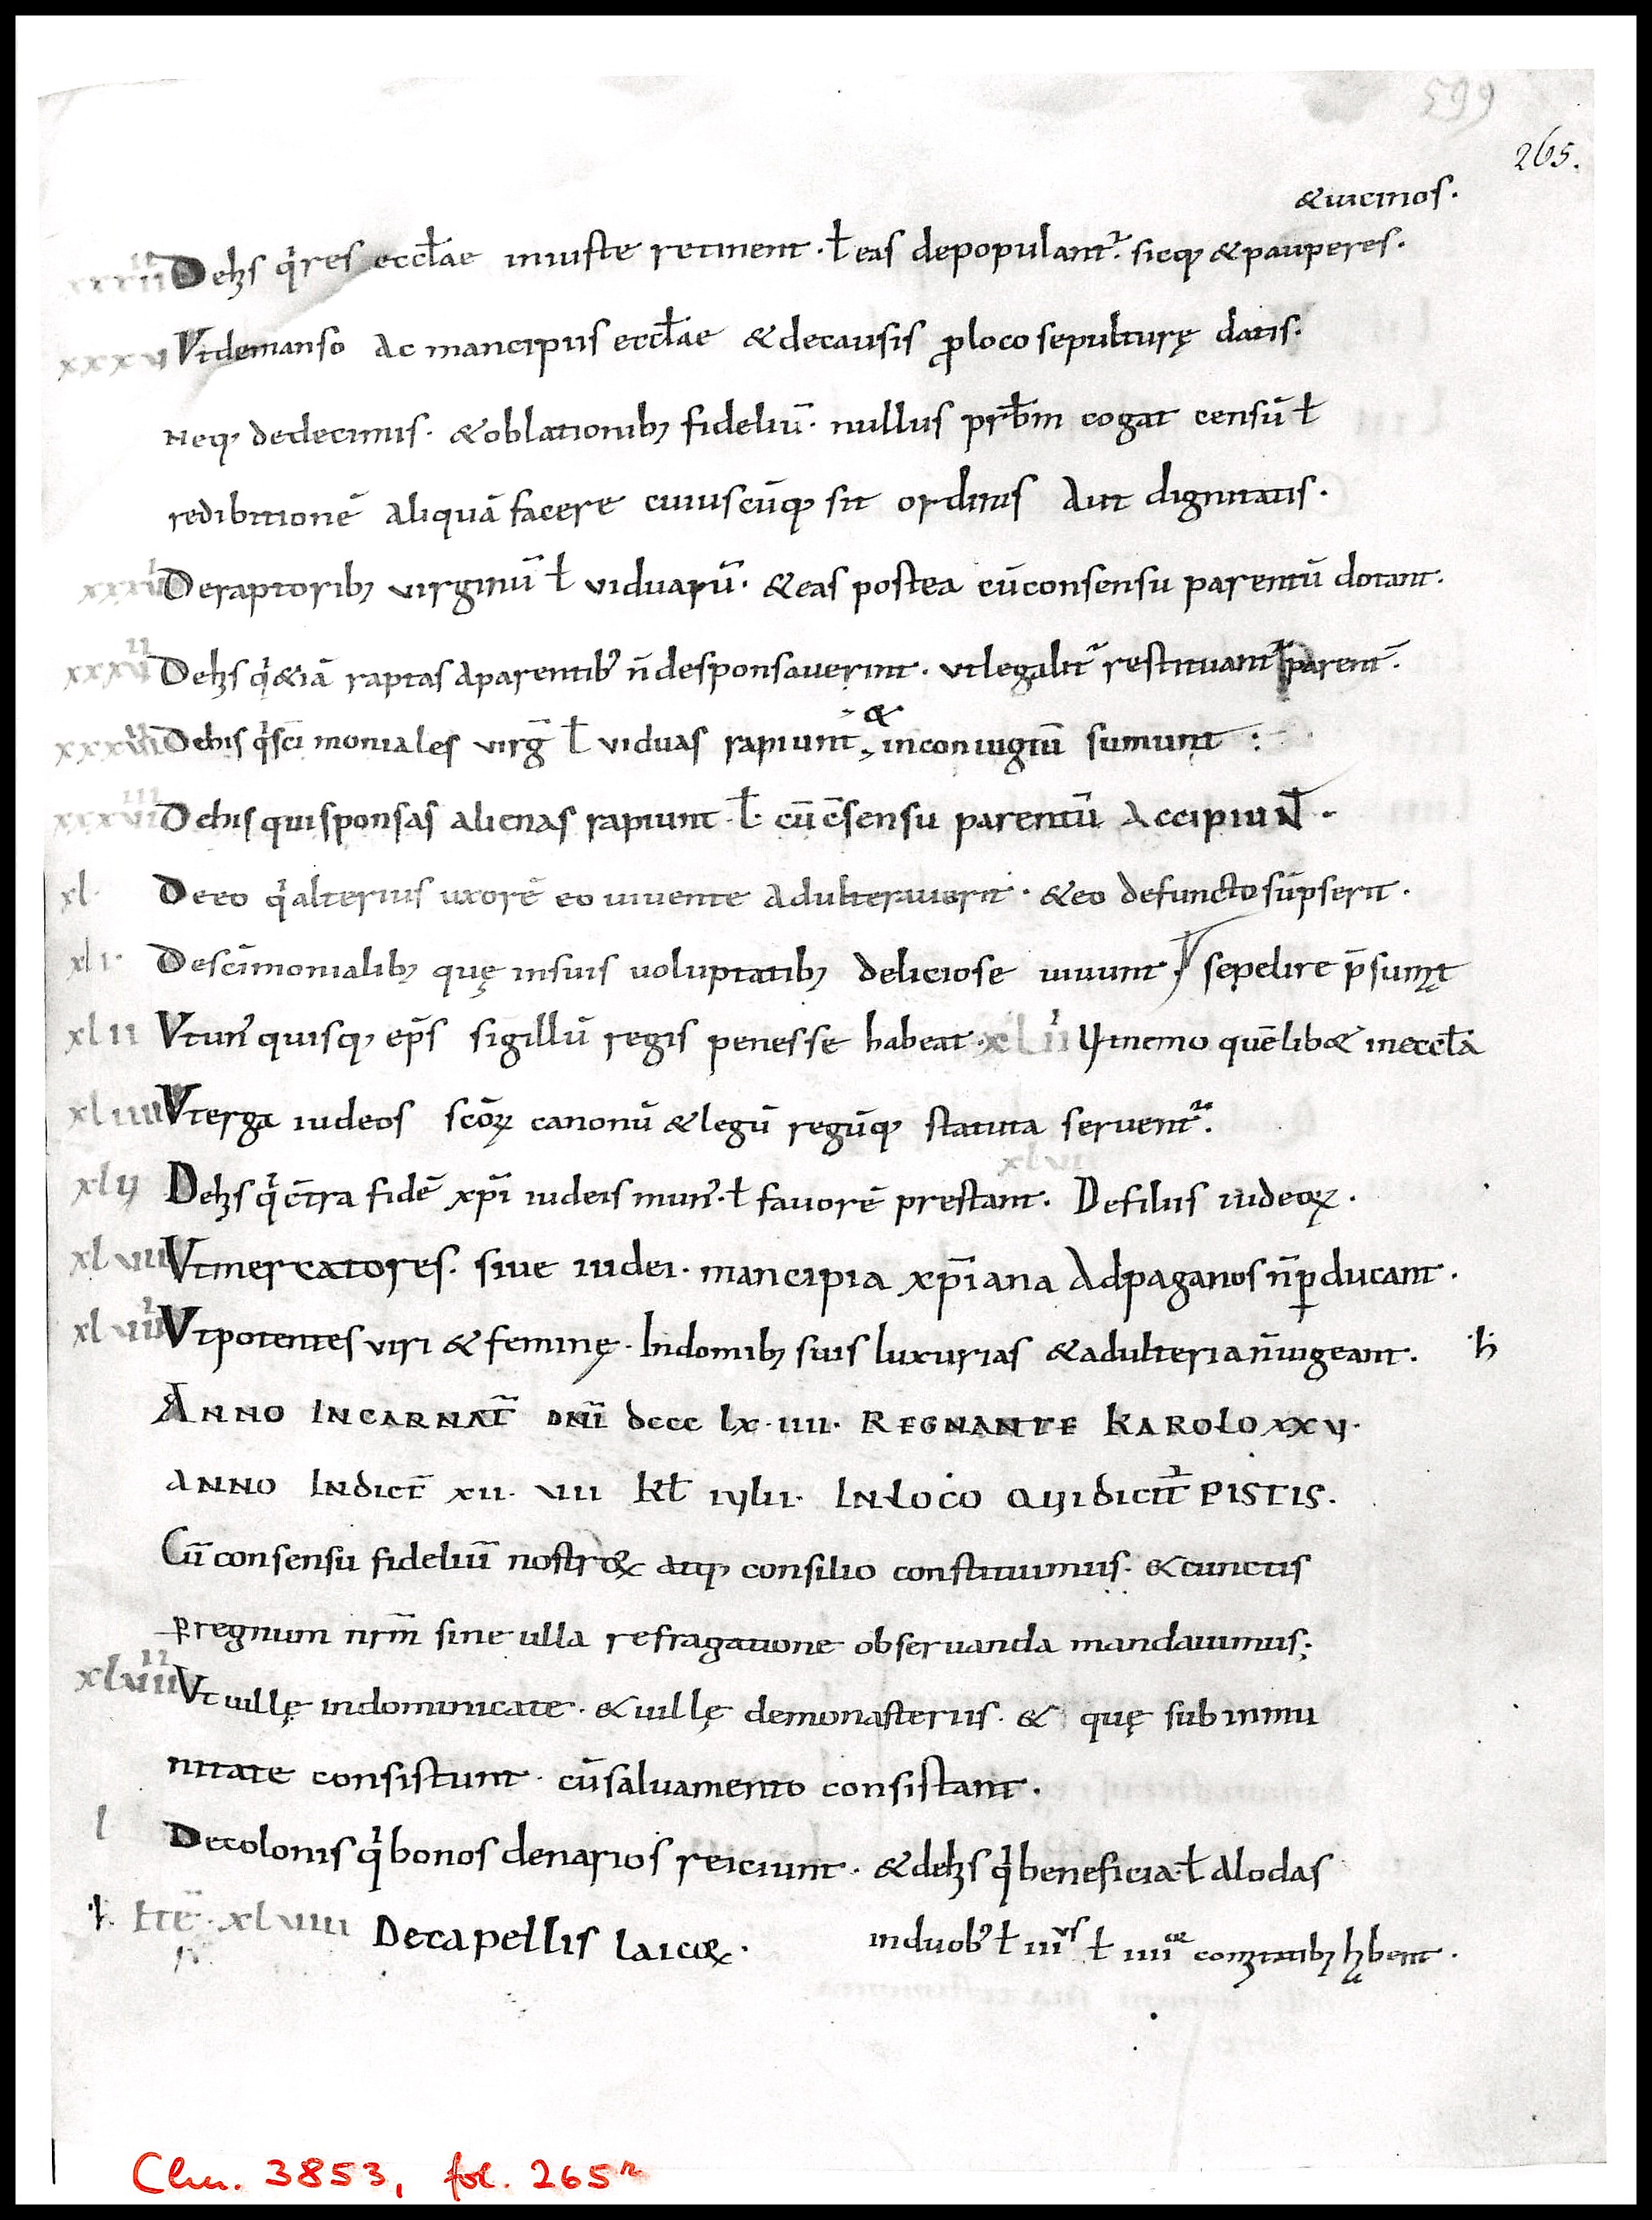 599
265.
& uicinos.
xxxiiii Dehis q̍ res eccƚae iniuste retinent · ƚ eas depopulant᷑. sicq; & pauperes.
xxxv Vt de manso ac mancipiis eccƚae & de causis p̱ loco sepulturę datis.
neq; de decimis. & oblationib; fideliū. nullus prb̄m cogat censū ƚ
redibitionē aliquā facere cuiuscūq; sit ordinis aut dignitatis.
De raptorib; virginū ƚ viduarū. & eas postea cū consensu parentū dotant.
Dehis q̍ &iā raptas a parentib; n̄ desponsauerint. vt legalit᷑ restituant᷑ parent̄.
&
De his q̍ sc̄i moniales virḡ ƚ viduas rapiunt, in coniugiū sumunt :
De his qui sponsas alienas rapiunt · ƚ · cū c̄sensu parentū accipiunt̄ ·
xl. De eo q̍ alterius uxorē eo uiuente adulterauerit. & eo defuncto sūpserit.
xli. De scīmonialib; quę in suis uoluptatib; deliciose uiuunt. sepelire p̄sumt
xlii Vt un᷒quisq; ep̄s sigillū regis penes se habeat. xliii Vt nemo quēlib& in eccƚa
xliiii Vt erga iudeos sc̄oꝝ canonū & legū regūq; statuta servent᷑.
xlvi
xlv Dehis q̍ c̄tra fidē xp̄i iudeis mun᷒. ƚ favorē prestant. De filiis iudeoꝝ.
xlvii Vt mercatores. siue iudei. mancipia xp̄iana ad paganos n̄ ꝑducant.
xlviii Vt potentes viri & feminę. In domib; suis luxurias & adulteria n̄ uigeant. ·ħ
ANNO INCARNAT̄ DNĪ dccc lx·iiii· REGNANTE KAROLO xxv·
ANNO INDICT̄ xii· viii Kƚ iulii· IN LOCO QUI dicit᷑ PISTIS.
Cū consensu fideliū nostroꝝ atq; consilio constituimus. & cunctis
ꝑ regnum nrm̄ sine ulla refragatione obseruanda mandauimus;
xlviiii Vt uillę indominicate. & uillę de monasteriis. & quę sub inmu
nitate consistunt. cū saluamento consistant.
l De colonis q̍ bonos denarios reiciunt. & dehis q̍ beneficia · ƚ alodas
·ħ· Itē· xlviiii De capellis laicoꝝ. in duob; ƚ iii ƚ iiii comitatib; hbent.
Clm. 3853, fol. 265r